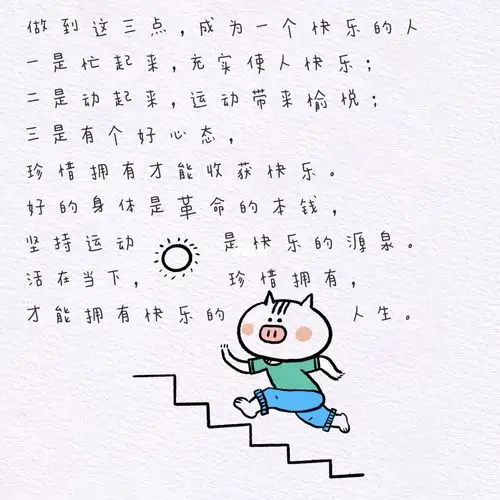 做到这三点,成为一个快乐的人
一是忙起来,充实使人快乐;
二是动起来,运动带来愉悦;
三是有个好心态,
珍惜拥有才能收获快乐。
好的身体是革命的本钱,
坚持运动 是快乐的源泉。
活在当下, 珍惜拥有,
才能拥有快乐的 人生。